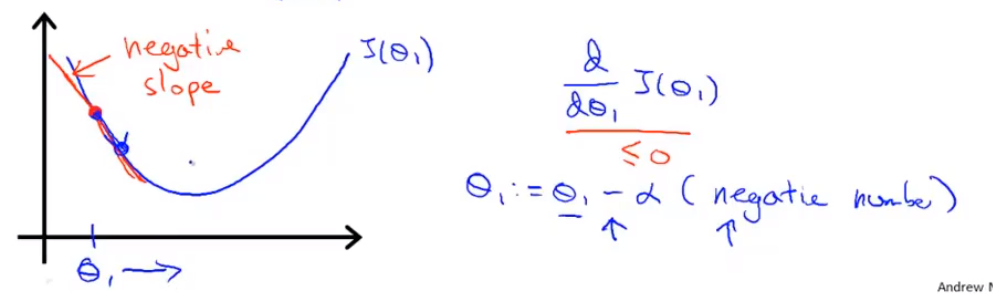 negative
slope
J(θ₁)
d/dθ₁ J(θ₁)
≤ 0
θ₁ := θ₁ - α (negatie number)
θ₁
Andrew N